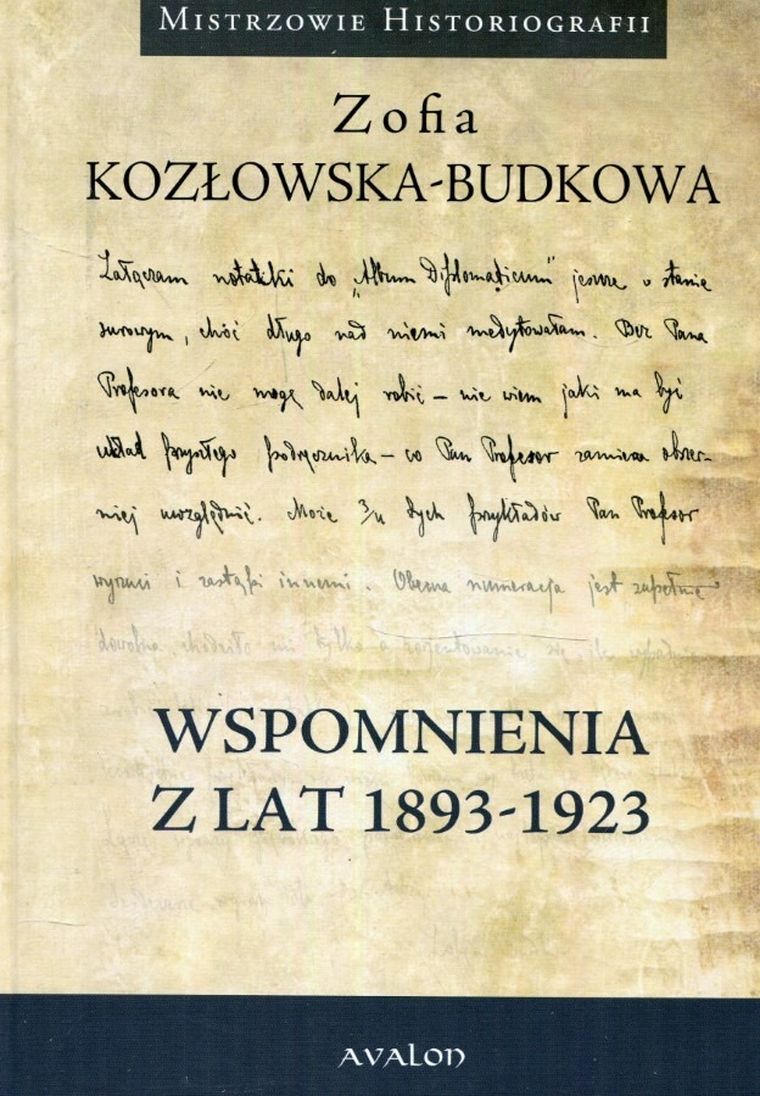 Mistrzowie Historiografii
Zofia
KOZŁOWSKA-BUDKOWA
Załączam notatki do „Album Diplomaticum" jeszcze w stanie
surowym, choć długo nad niemi medytowałam. Bez Pana
Profesora nie mogę dalej robić – nie wiem jaki ma być
układ przyszłego podręcznika – co Pan Profesor zamierza obszer-
niej uwzględnić. Może 3/4 tych przykładów Pan Profesor
wyrzuci i zastąpi innemi. Obecna numeracja jest zupełnie
dowolna, chodziło mi tylko o zorjentowanie się, ile wypadnie
WSPOMNIENIA
Z LAT 1893-1923
AVALON